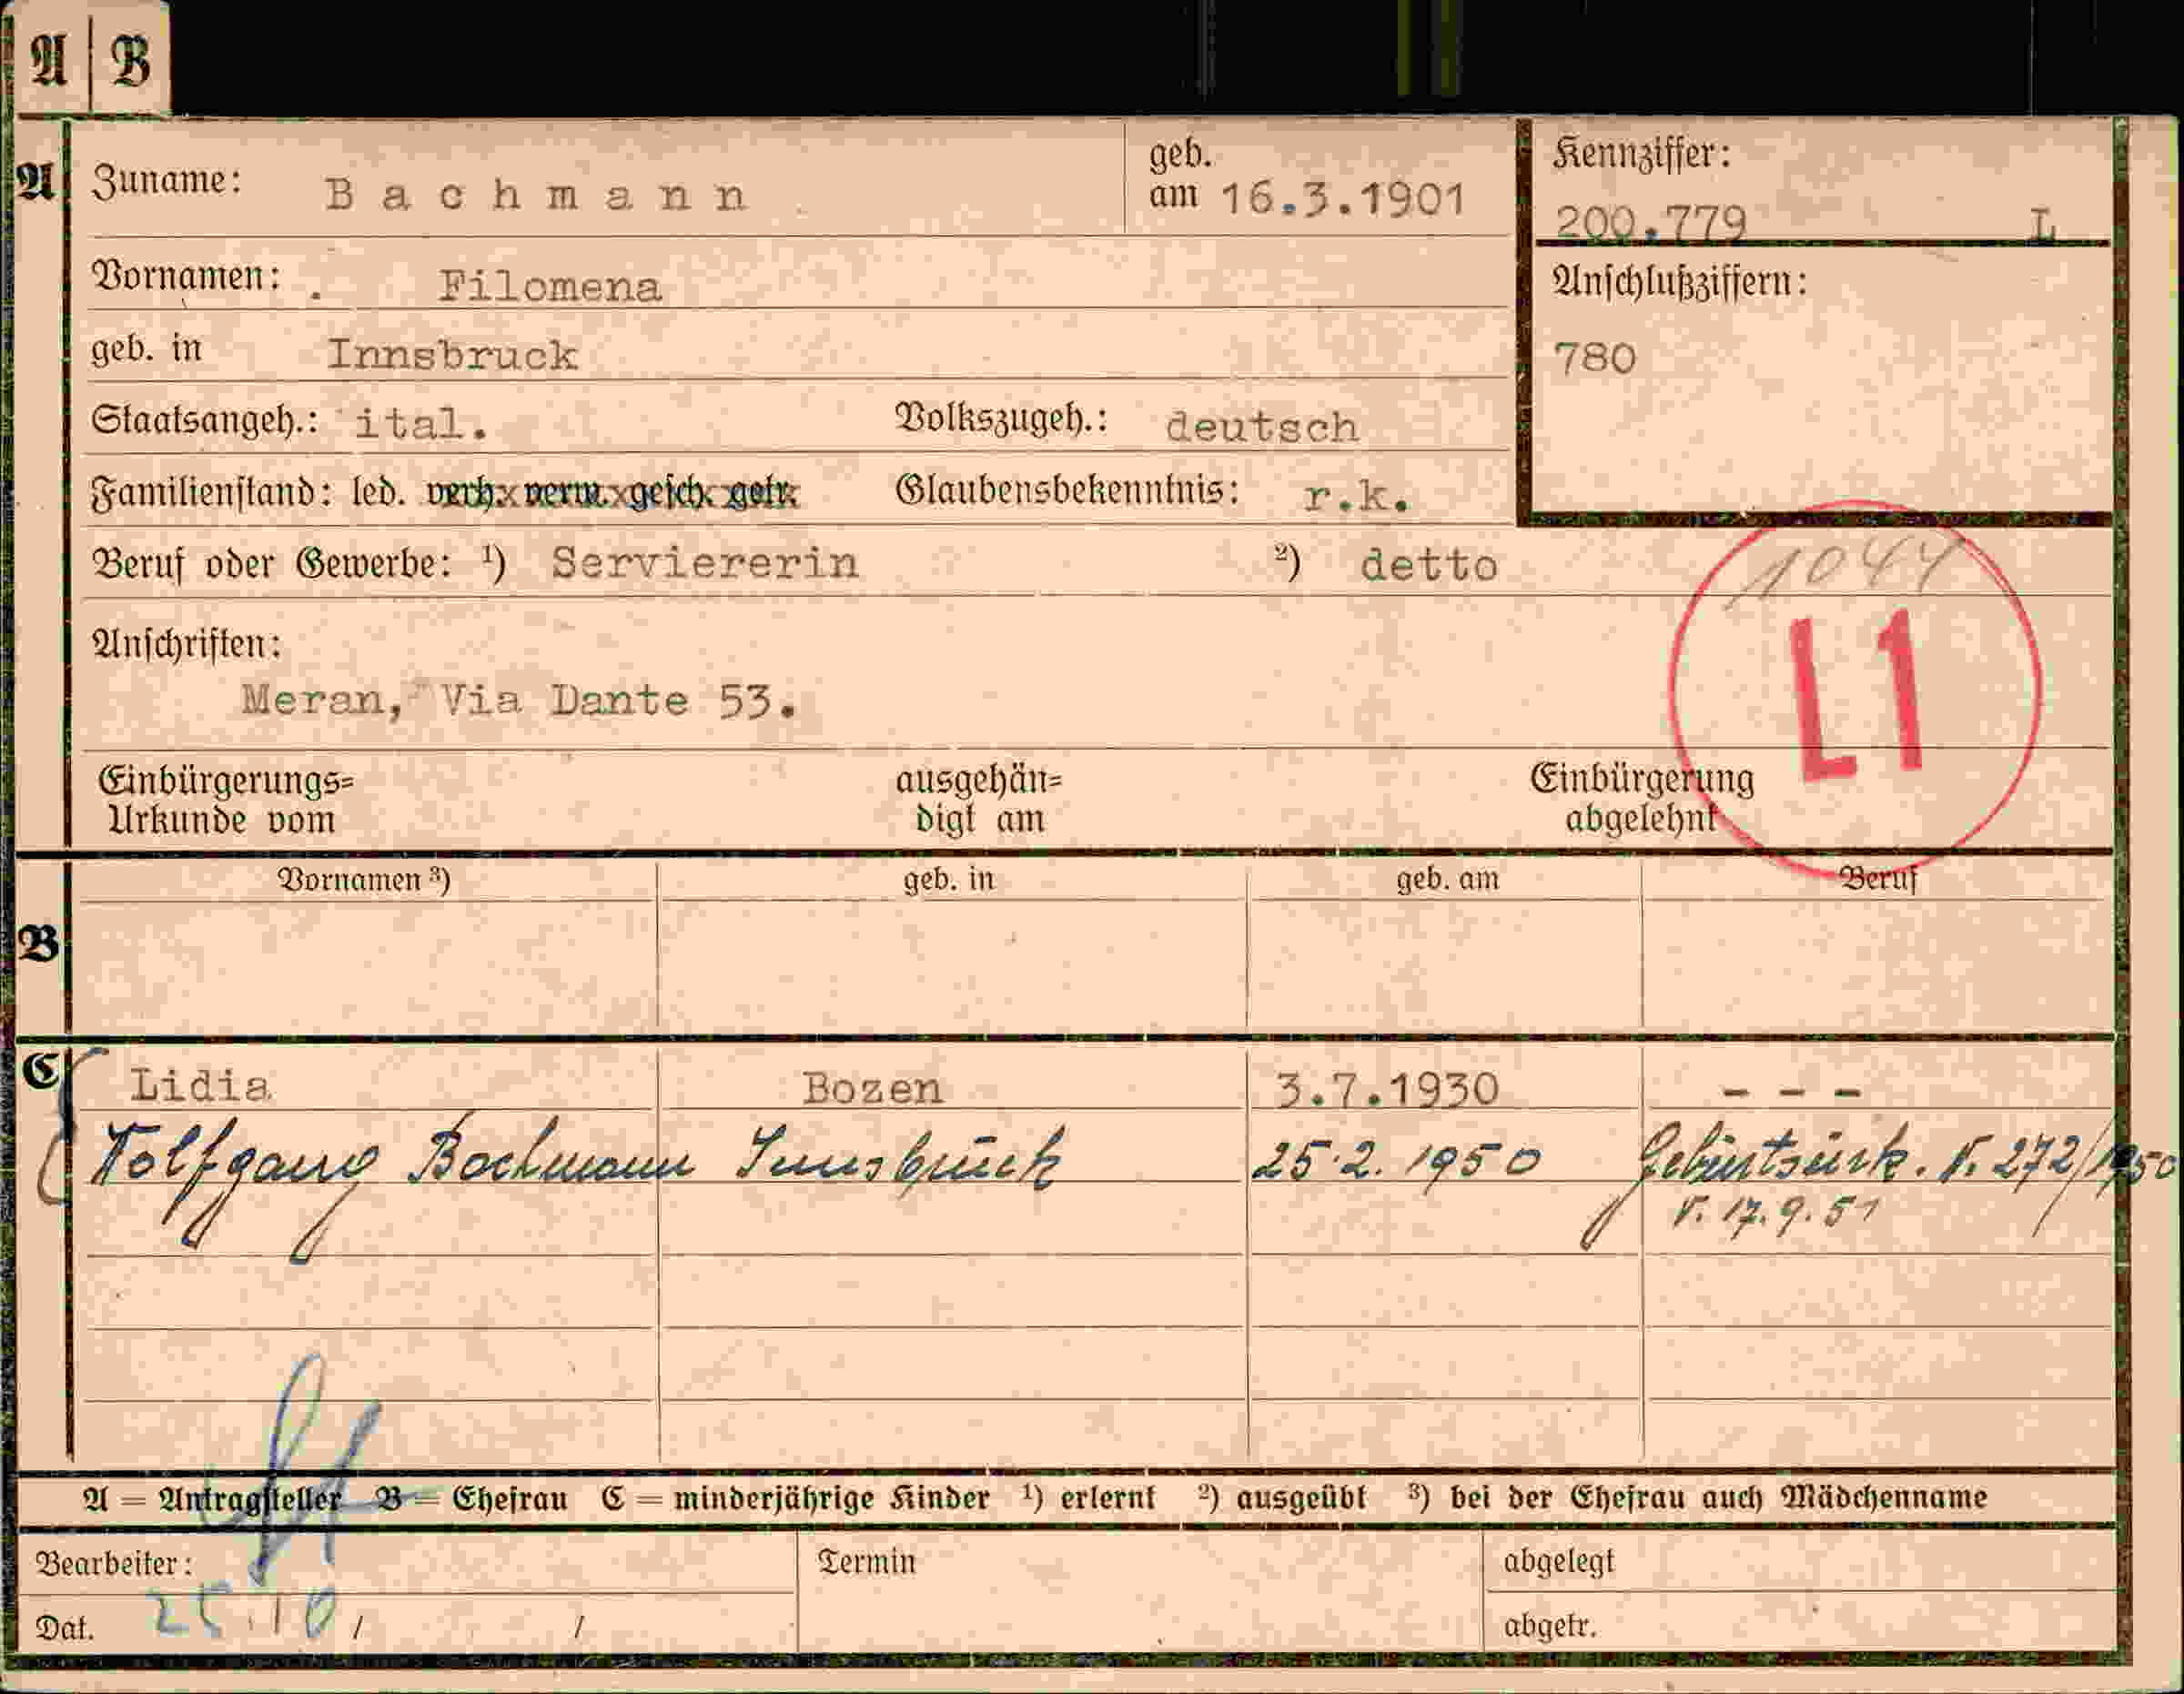 A | B
A Zuname: Bachmann geb. am 16.3.1901
Kennziffer:
200.779 L
Vornamen: Filomena
Anschlußziffern:
geb. in Innsbruck
780
Staatsangeh.: ital. Volkszugeh.: deutsch
Familienstand: led. verh. verw. gesch. getr. Glaubensbekenntnis: r.k.
Beruf oder Gewerbe: ¹) Serviererin ²) detto
1044
L1
Anschriften:
Meran, Via Dante 53.
Einbürgerungs= ausgehän= Einbürgerung
Urkunde vom digt am abgelehnt
Vornamen ³) geb. in geb. am Beruf
B
C Lidia Bozen 3.7.1930 - - -
Wolfgang Bachmann Innsbruck 25.2.1950 Geburtsurk. N. 272/1950
v. 17.9.51
A = Antragsteller B = Ehefrau C = minderjährige Kinder ¹) erlernt ²) ausgeübt ³) bei der Ehefrau auch Mädchenname
Bearbeiter: Termin abgelegt
Dat. 25.10 / / abgetr.